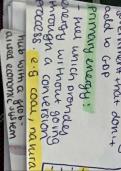 that don't
add to GDP
primary energy:
- fuel which provides
energy without going
through a conversion
process e.g coal, natura
hub with a glob-
alised economic system